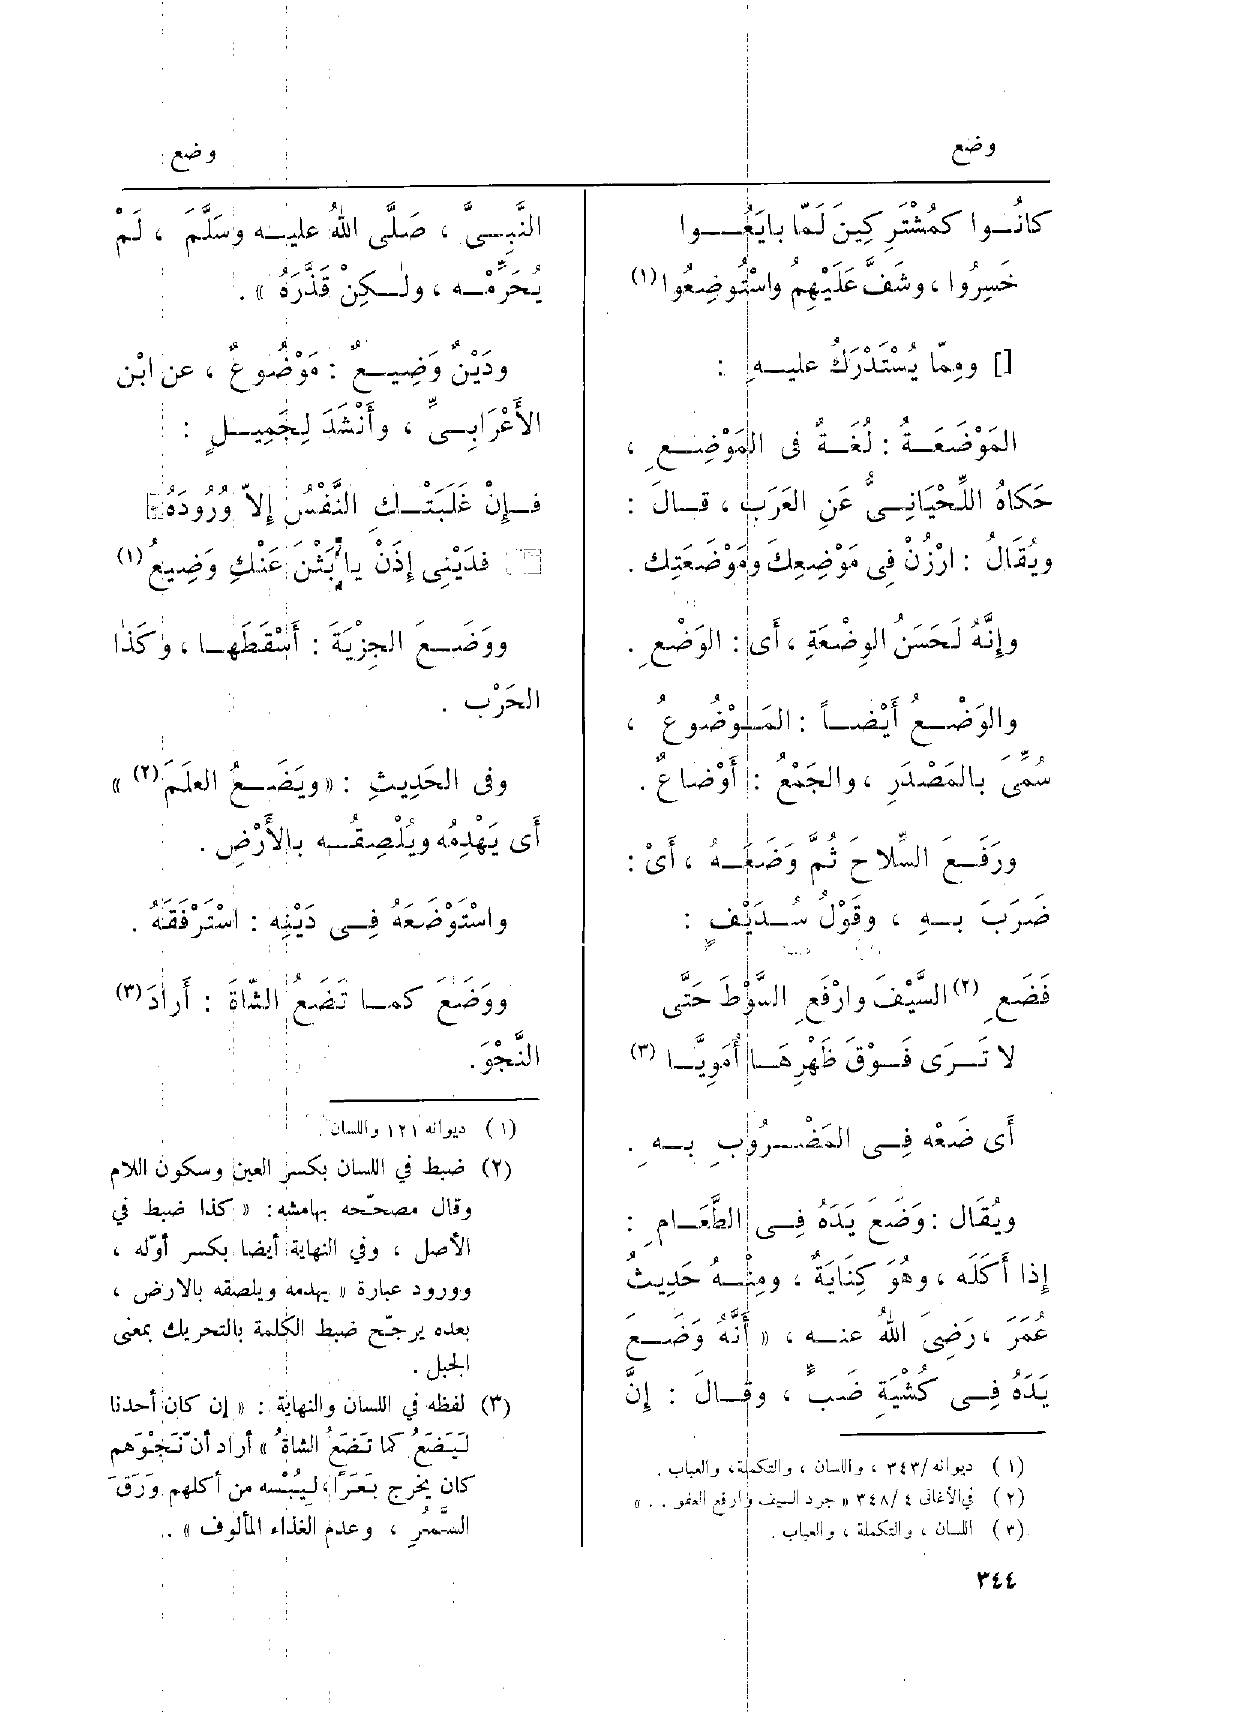 وضع
كانُـوا كَمُشْتَرِكِينَ لَمّا بايَعُـوا
خَسِرُوا ، وشَفَّ عَلَيْهِمُ واسْتُوضِعُوا (١)
[] ومِمّا يُسْتَدْرَكُ عليـهِ :
المَوْضَعَـةُ : لُغَـةٌ فى المَوْضِـعِ ،
حَكاهُ اللِّحْيَانِـىُّ عَنِ العَرَبِ ، قـالَ :
ويُقَالُ : ارْزُنْ فِى مَوْضِعِكَ ومَوْضَعَتِك .
وإِنَّهُ لَحَسَنُ الوِضْعَةِ ، أَى : الوَضْعِ .
والوَضْـعُ أَيْضـاً : المَـوْضُوعُ ،
سُمِّىَ بالمَصْدَرِ ، والجَمْعُ : أَوْضاعٌ .
ورَفَـعَ السِّلاحَ ثُمَّ وَضَعَـهُ ، أَىْ :
ضَرَبَ بـهِ ، وقَوْلُ سُـدَيْفٍ :
فَضَعِ (٢) السَّيْفَ وارْفَعِ السَّوْطَ حَتَّى
لا تَـرَى فَـوْقَ ظَهْرِهَـا أُمَوِيَّـا (٣)
أَى ضَعْه فِـى المَضْـرُوبِ بـهِ .
ويُقَال : وَضَعَ يَدَهُ فِـى الطَّعَـامِ :
إذا أَكَلَه ، وهُوَ كِنَايَةٌ ، ومِنْـهُ حَدِيثُ
عُمَرَ ، رَضِىَ اللهُ عنـه ، « أَنَّهُ وَضَـعَ
يَدَهُ فِـى كُشْيَةِ ضَبٍّ ، وقـالَ : إنَّ
(١) ديوانه /٣٤٣ ، واللسان ، والتكملة، والعباب .
(٢) في الأغانى ٤ /٣٤٨ « جرد السيف وارفع العفو . . »
(٣) اللسان ، والتكملة ، والعباب .
٣٤٤
وضع
النَّبِـىَّ ، صَلَّى اللهُ عليـه وسَلَّمَ ، لَمْ
يُحَرِّمْـه ، ولـكِنْ قَذَّرَهُ » .
ودَيْنٌ وَضِيـعٌ : مَوْضُوعٌ ، عن ابْن
الأَعْرَابِـىِّ ، وأَنْشَدَ لِجَمِيـلٍ :
فـإِنْ غَلَبَتْـكِ النَّفْسُ إلاّ وُرُودَهُ
فدَيْنِى إذَنْ يا بَثْنَ عَنْكِ وَضِيعُ (١)
ووَضَـعَ الجِزْيَةَ : أَسْقَطَهـا ، وكَذا
الحَرْب .
وفى الحَدِيثِ : « ويَضَـعُ العلَمَ (٢) »
أَى يَهْدِمُه ويُلْصِقُـه بالأَرْضِ .
واسْتَوْضَعَهُ فِـى دَيْنِه : اسْتَرْفَقَهُ .
ووَضَعَ كمـا تَضَعُ الشّاةَ : أَرادَ (٣)
النَّجْوَ.
(١) ديوانه ١٢١ واللسان .
(٢) ضبط في اللسان بكسر العين وسكون اللام
وقال مصحّحه بهامشه: « كذا ضبط في
الأصل ، وفي النهاية أيضا بكسر أوّله ،
وورود عبارة « يهدمه ويلصقه بالارض ،
بعده يرجّح ضبط الكلمة بالتحريك بمعنى
الجبل .
(٣) لفظه في اللسان والنهاية : « إن كان أحدنا
لَيَضَعُ كما تَضَعُ الشاةُ » أراد أن نَجْوَهم
كان يخرج بَعَرًا؛ ليُبْسه من أكلهم وَرَقَ
السَّمُرِ ، وعدم الغذاء المألوف » ..